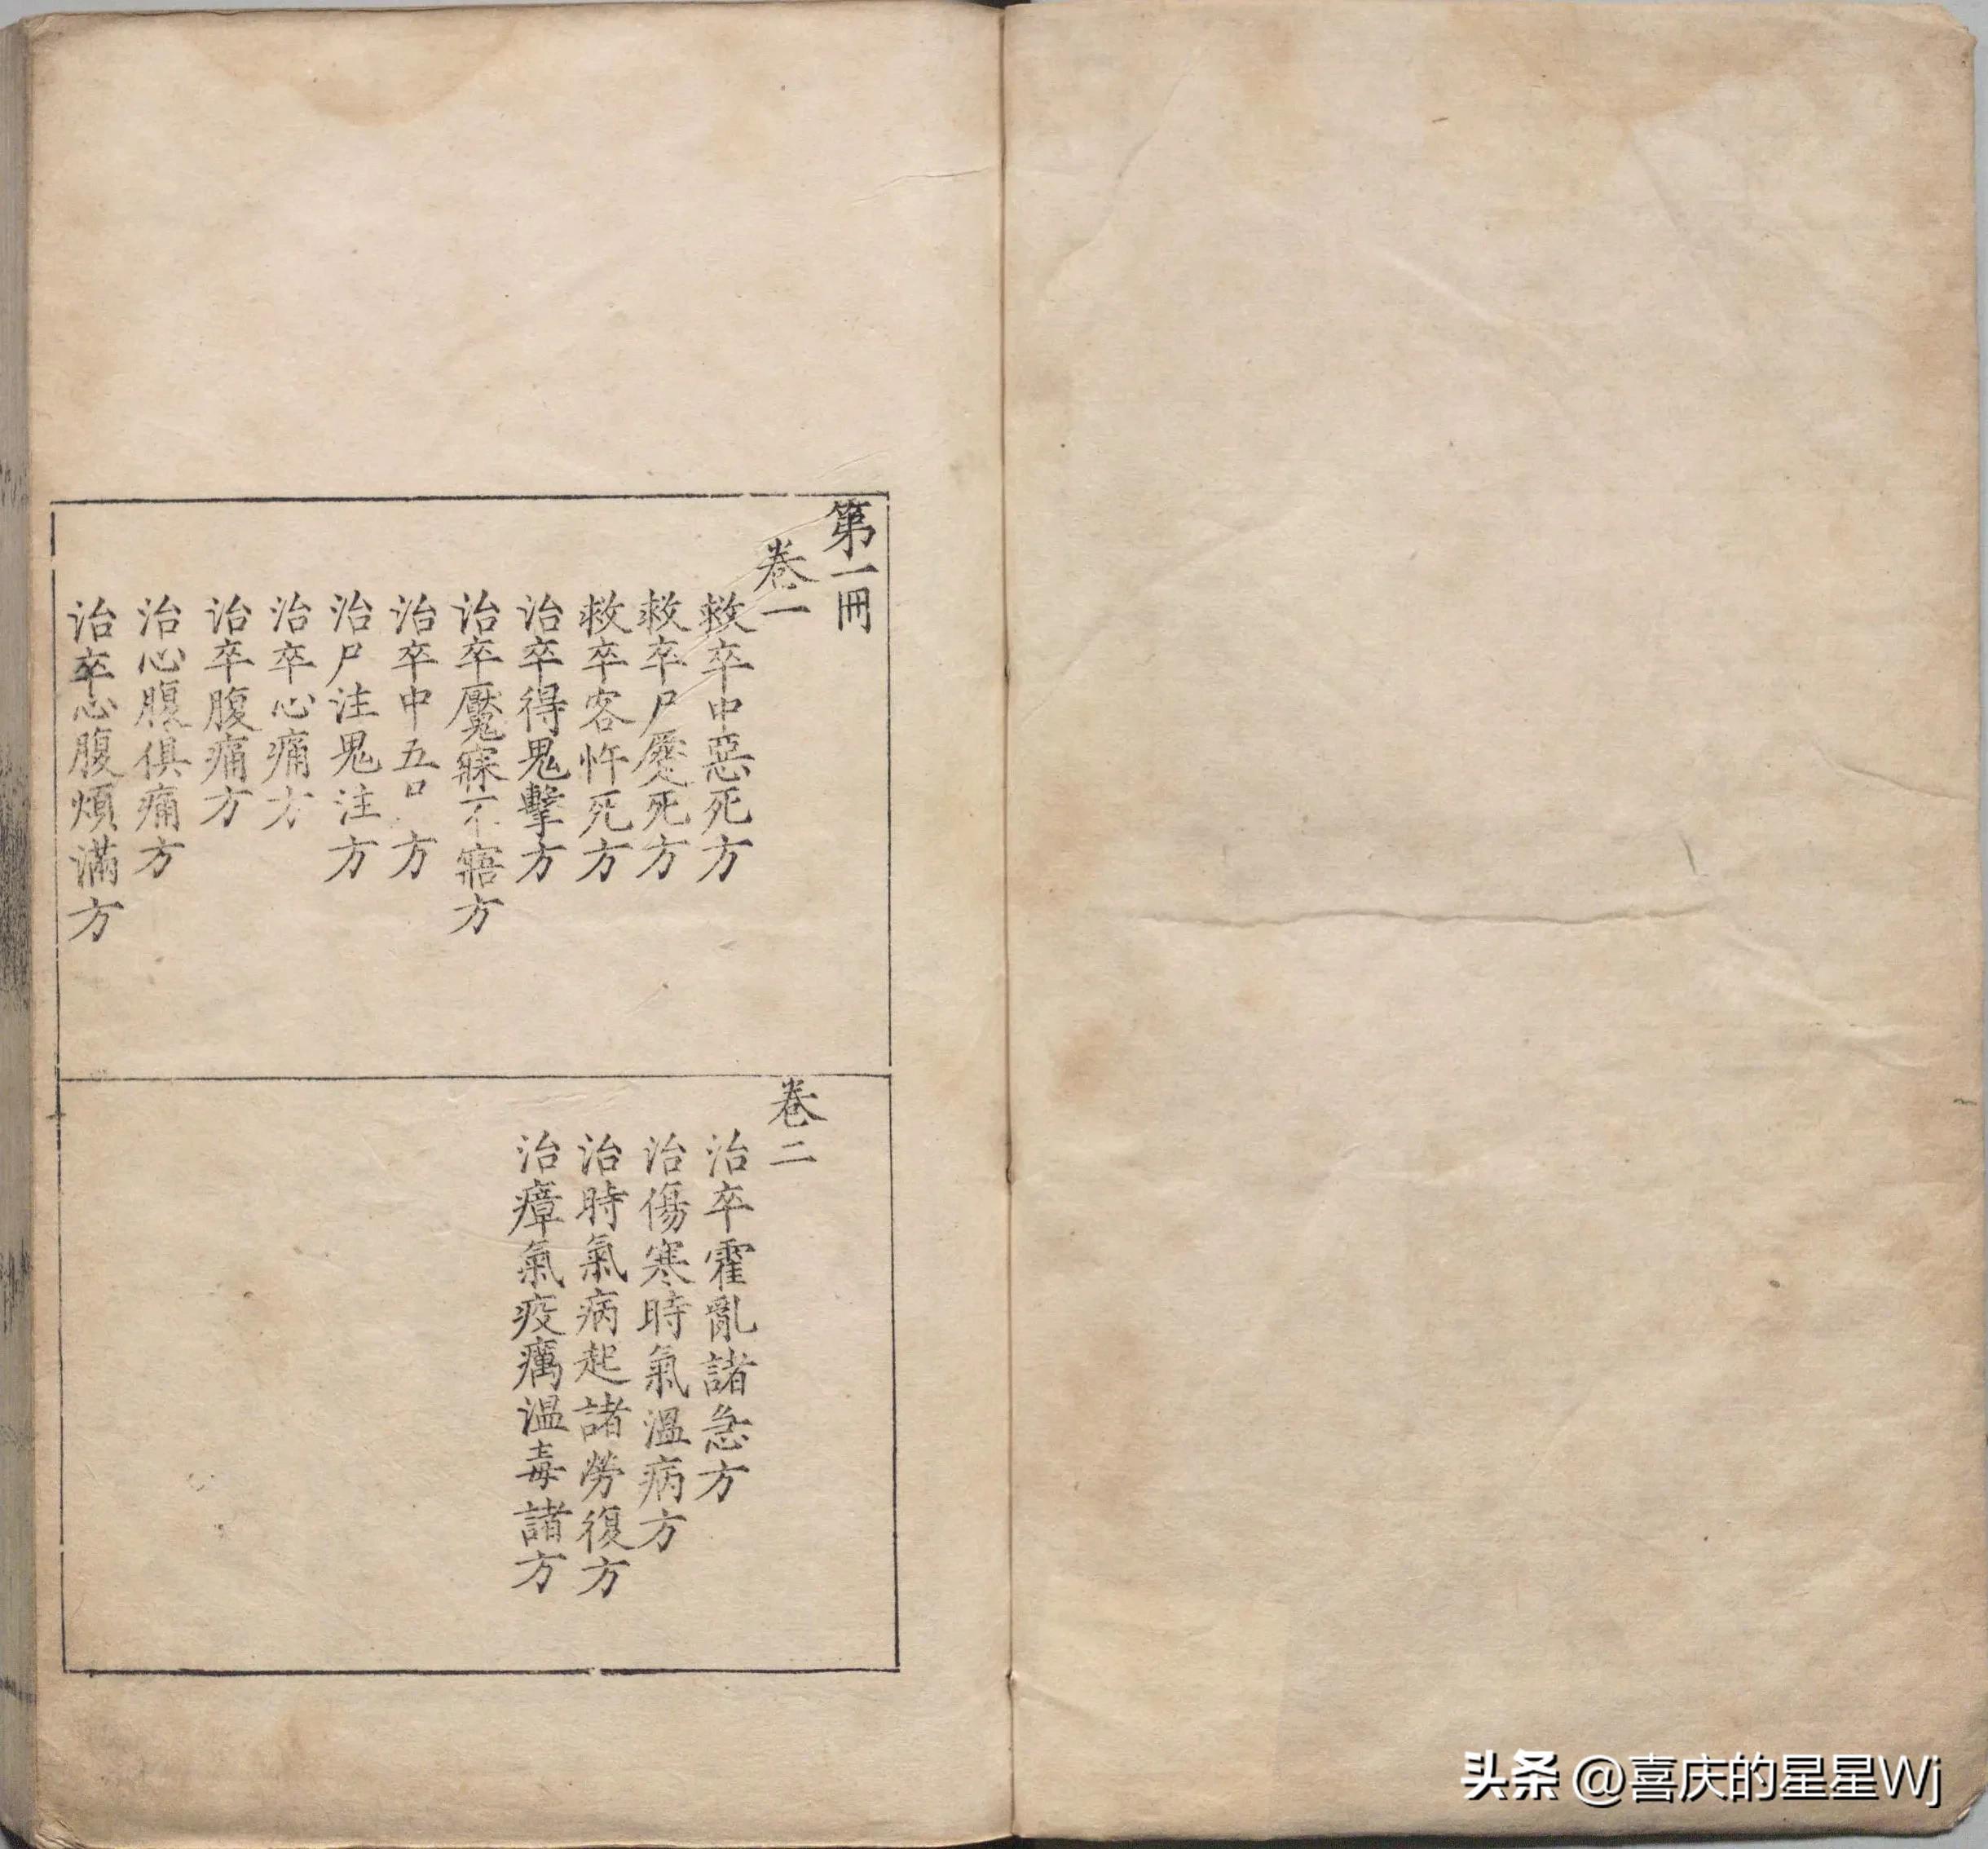 第一冊
卷一
救卒中惡死方
救卒尸蹷死方
救卒客忤死方
治卒得鬼擊方
治卒魘寐不寤方
治卒中五 方
治尸注鬼注方
治卒心痛方
治卒腹痛方
治心腹俱痛方
治卒心腹煩滿方
卷二
治卒霍亂諸急方
治傷寒時氣溫病方
治時氣病起諸勞復方
治瘴氣疫癘温毒諸方
头条 @喜庆的星星Wj